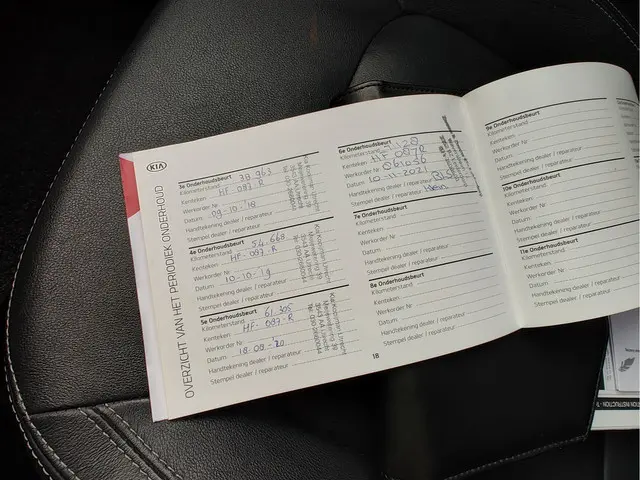 KIA
OVERZICHT VAN HET PERIODIEK ONDERHOUD
3e Onderhoudsbeurt
Kilometerstand 38 963
Kenteken HF-097-R
Werkorder Nr
Datum 09-10-'18
Handtekening dealer / reparateur
Stempel dealer / reparateur
4e Onderhoudsbeurt
Kilometerstand 54.669
Kenteken HF-097-R
Werkorder Nr
Datum 10-10-'19
Handtekening dealer / reparateur
Stempel dealer / reparateur
5e Onderhoudsbeurt
Kilometerstand 61.305
Kenteken HF-097-R
Werkorder Nr
Datum 18-09-'20
Handtekening dealer / reparateur
Stempel dealer / reparateur
6e Onderhoudsbeurt
Kilometerstand
Kenteken HF 097R
Werkorder Nr 061036
Datum 10-11-2021
Handtekening dealer / reparateur
Stempel dealer / reparateur Klein
7e Onderhoudsbeurt
Kilometerstand
Kenteken
Werkorder Nr
Datum
Handtekening dealer / reparateur
Stempel dealer / reparateur
8e Onderhoudsbeurt
Kilometerstand
Kenteken
Werkorder Nr
Datum
Handtekening dealer / reparateur
Stempel dealer / reparateur
18
9e Onderhoudsbeurt
Kilometerstand
Kenteken
Werkorder Nr
Datum
Handtekening dealer / reparateur
Stempel dealer / reparateur
10e Onderhoudsbeurt
Kilometerstand
Kenteken
Werkorder Nr
Datum
Handtekening dealer / reparateur
Stempel dealer / reparateur
11e Onderhoudsbeurt
Kilometerstand
Kenteken
Werkorder Nr
Datum
Handtekening dealer / reparateur
Stempel dealer / reparateur